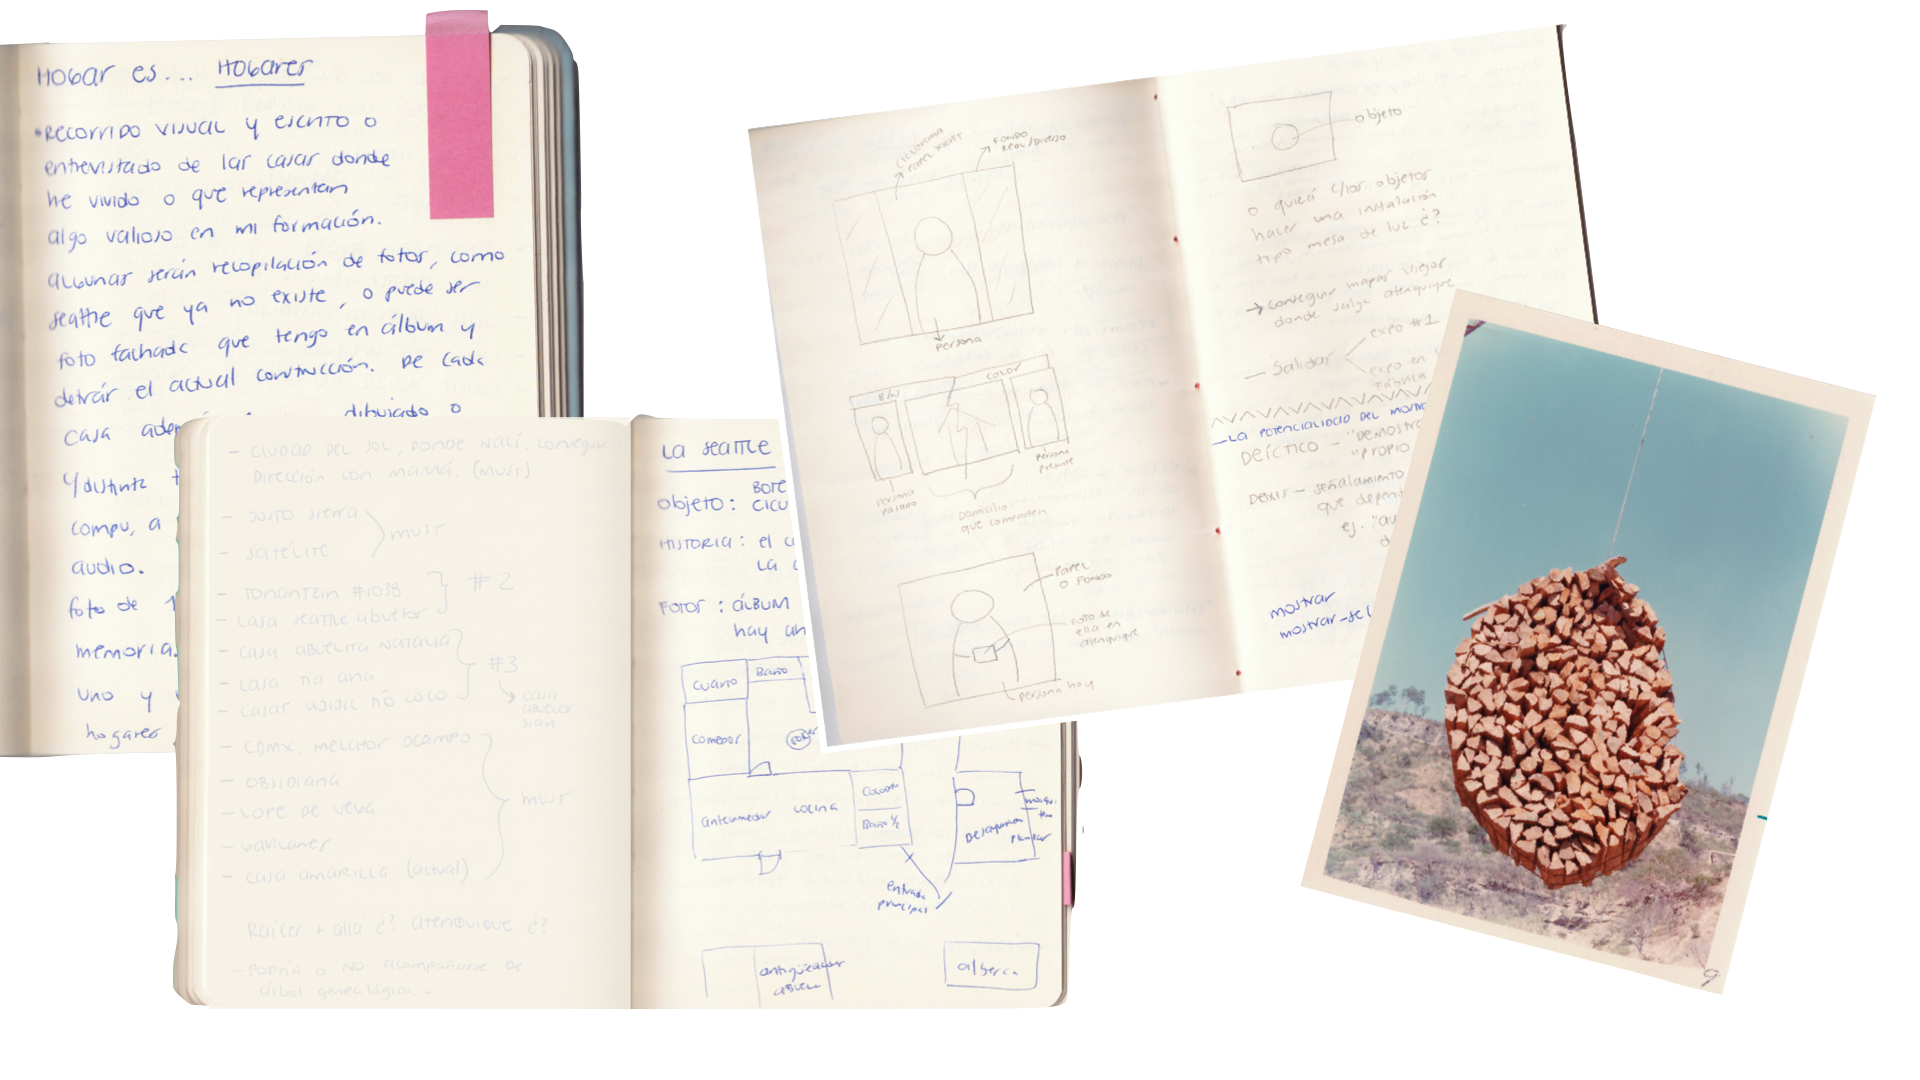 HOGAR es... HOGARES
• RECORRIDO VISUAL y escrito o
entrevistado de las casas donde
he vivido o que representan
algo valioso en mi formación.
ALGUNAS serán recopilación de fotos, como
seattle que ya no existe, o puede ser
foto fachada que tengo en álbum y
detrás el actual construcción. De cada
casa
dibujado o
compu, a
audio.
foto de
memoria.
uno y
hogares
- CIUDAD DEL SOL, DONDE NACÍ. conseguir
Dirección con mamá. (MUST)
- JUSTO SIERRA
- SATÉLITE
must
- TONANTZIN #1038
- casa seattle abuelos
#2
- casa ABUELITA NATALIA
- casa tía ana
- casas AJIJIC tío coco
#3
casa
abuelos
- CDMX, MELCHOR OCAMPO
- OBSIDIANA
- LOPE DE VEGA
- casa AMARILLA (actual)
must
Raíces + allá ¿? atenquique ¿?
- PODRÍA o NO acompañarse de
árbol genealógico. -
LA seattle
Objeto: BOTE
HISTORIA: el
LA
FOTOS: ÁLBUM
hay
cuarto
Baño
comedor
antecomedor
cocina
Baño 1/2
entrada
principal
antigüedades
alberca
CICLORAMA
PAPEL KRAFT
FONDO
REAL/DIVERSO
PERSONA
B/N
COLOR
persona
pasado
persona
presente
Domicilio
que comparten
PAPEL
O FONDO
FOTO de
ella en
atenquique
persona hoy
objeto
o quizá c/los objetos
hacer una instalación
tipo mesa de luz ¿?
→ conseguir mapas viejos
donde salga atenquique
— Salidas
expo #1
expo en
Fábrica
—LA POTENCIALIDAD DEL MOSTRAR
DEÍCTICO - "DEMOSTR
"PROPIO
DEIXIS - señalamiento
que depen
ej. "au
mostrar
mostrar-se
9